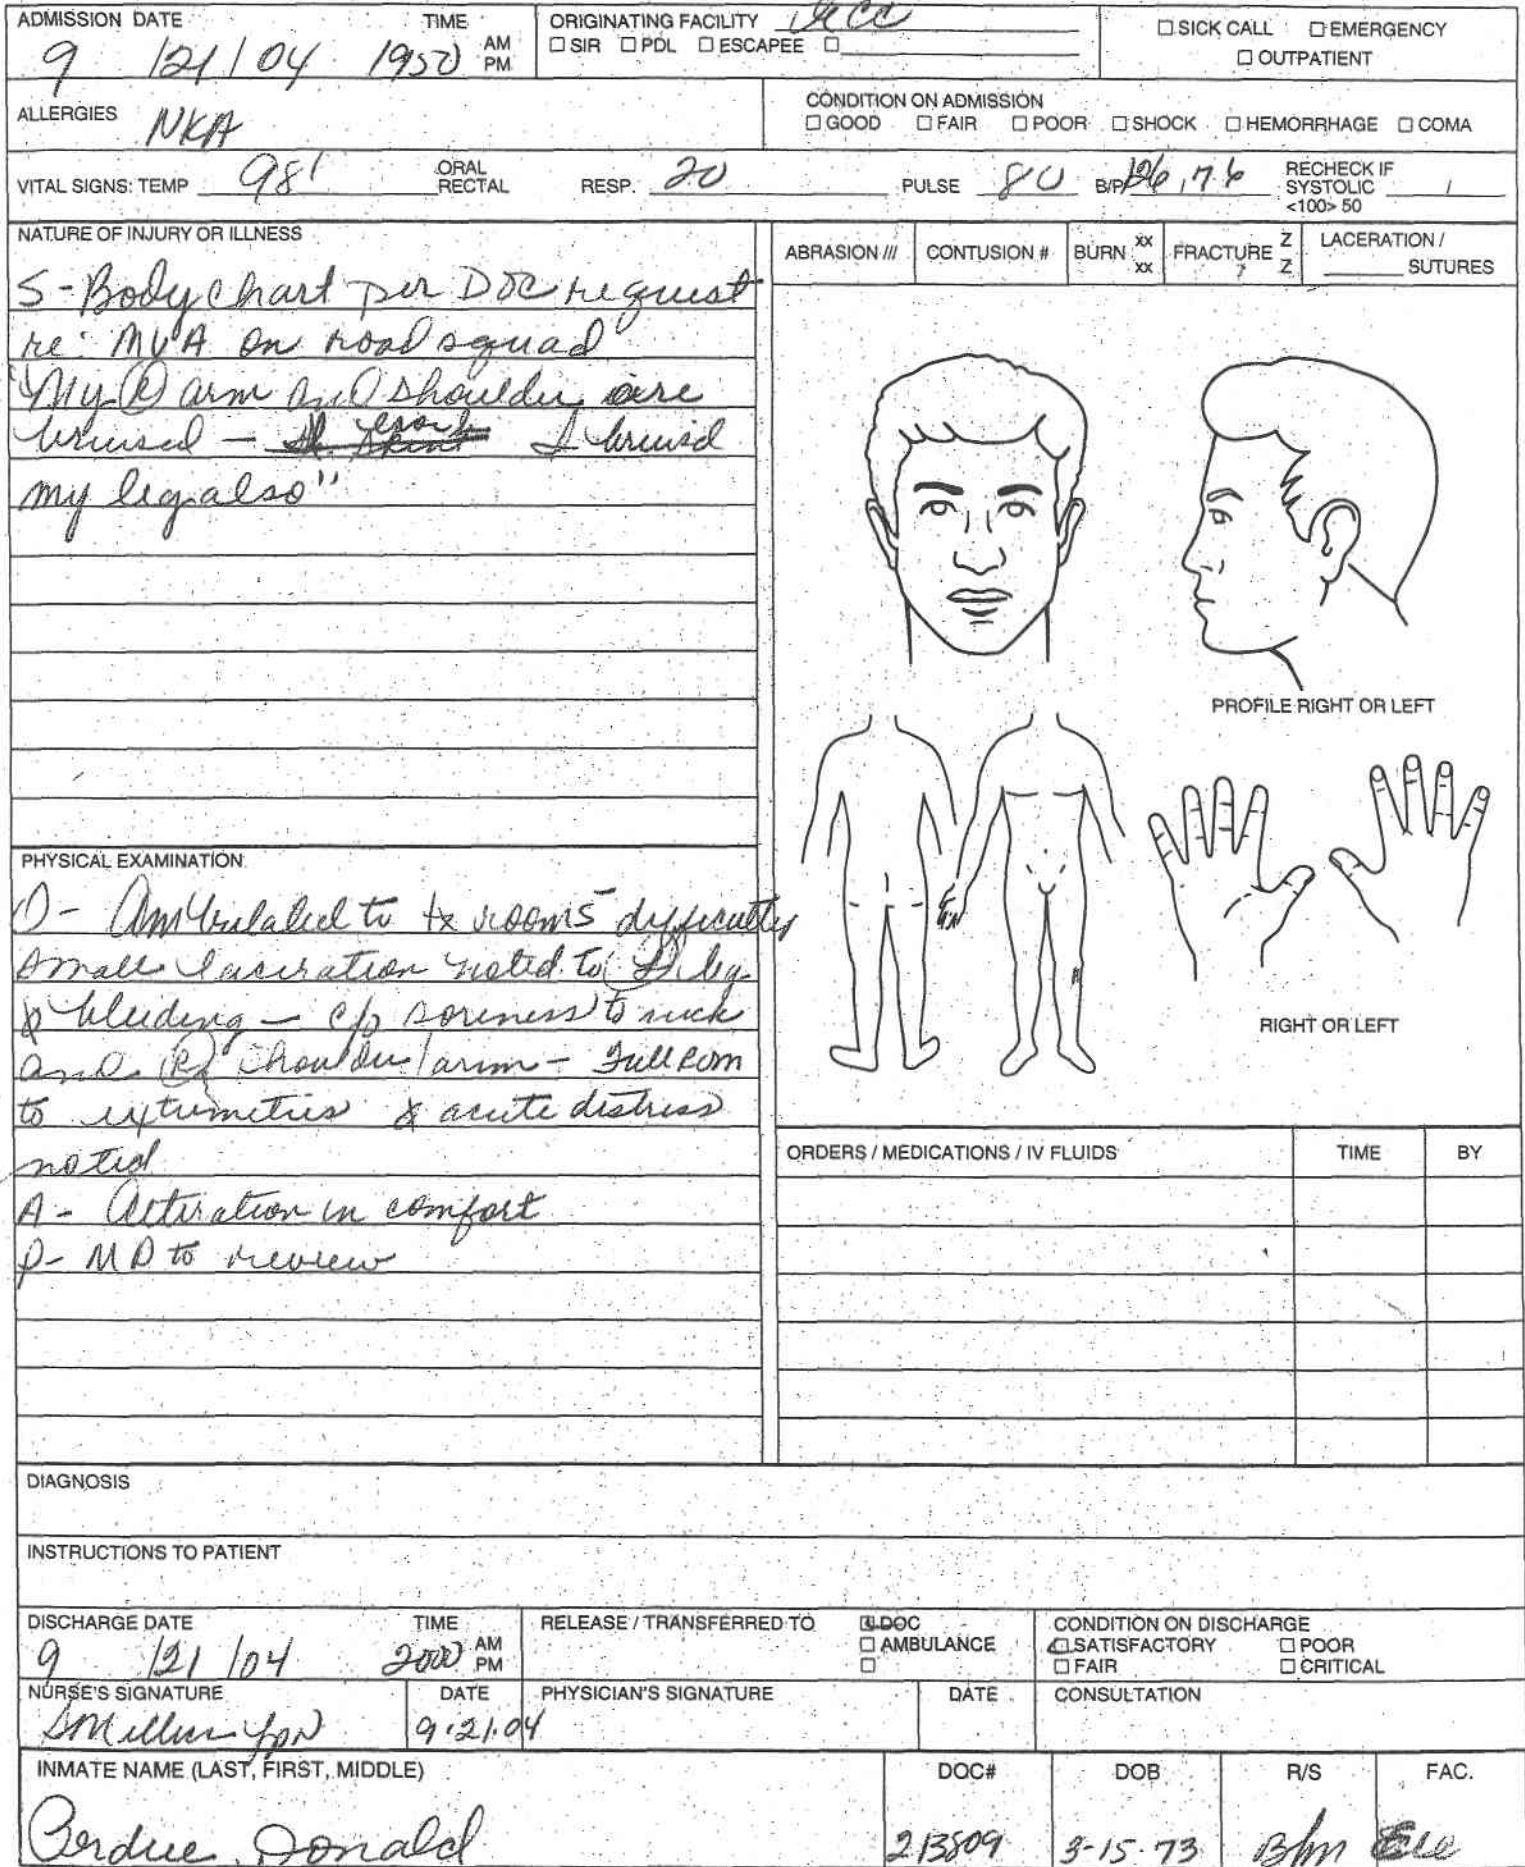 ADMISSION DATE TIME
9 /21/04 1950 AM PM
ORIGINATING FACILITY
☐ SIR ☐ PDL ☐ ESCAPEE ☐
☐ SICK CALL ☐ EMERGENCY
☐ OUTPATIENT
ALLERGIES NKA
CONDITION ON ADMISSION
☐ GOOD ☐ FAIR ☐ POOR ☐ SHOCK ☐ HEMORRHAGE ☐ COMA
VITAL SIGNS: TEMP 98' ORAL RECTAL RESP. 20 PULSE 80 B/P 126/76 RECHECK IF SYSTOLIC / <100> 50
NATURE OF INJURY OR ILLNESS
S - Body chart per DOC request
re: MVA on road squad
"My (R) arm and shoulder are
bruised - I bruisd
my leg also"
ABRASION /// CONTUSION # BURN xx xx FRACTURE Z Z LACERATION / SUTURES
PROFILE RIGHT OR LEFT
RIGHT OR LEFT
PHYSICAL EXAMINATION
O - Ambulated to tx room s̄ difficulty
small laceration noted to (L) leg
bleeding - c/o soreness to neck
and (R) shoulder/arm - Full ROM
to extremeties acute distress
noted
A - Alteration in comfort
P - MD to review
ORDERS / MEDICATIONS / IV FLUIDS TIME BY
DIAGNOSIS
INSTRUCTIONS TO PATIENT
DISCHARGE DATE TIME
9 /21/04 2000 AM PM
RELEASE / TRANSFERRED TO ☑ DOC
☐ AMBULANCE
☐
CONDITION ON DISCHARGE
☑ SATISFACTORY ☐ POOR
☐ FAIR ☐ CRITICAL
NURSE'S SIGNATURE DATE PHYSICIAN'S SIGNATURE DATE CONSULTATION
SMiller LPN 9.21.04
INMATE NAME (LAST, FIRST, MIDDLE) DOC# DOB R/S FAC.
Perdue, Donald 213809 3-15-73 B/m Ecc